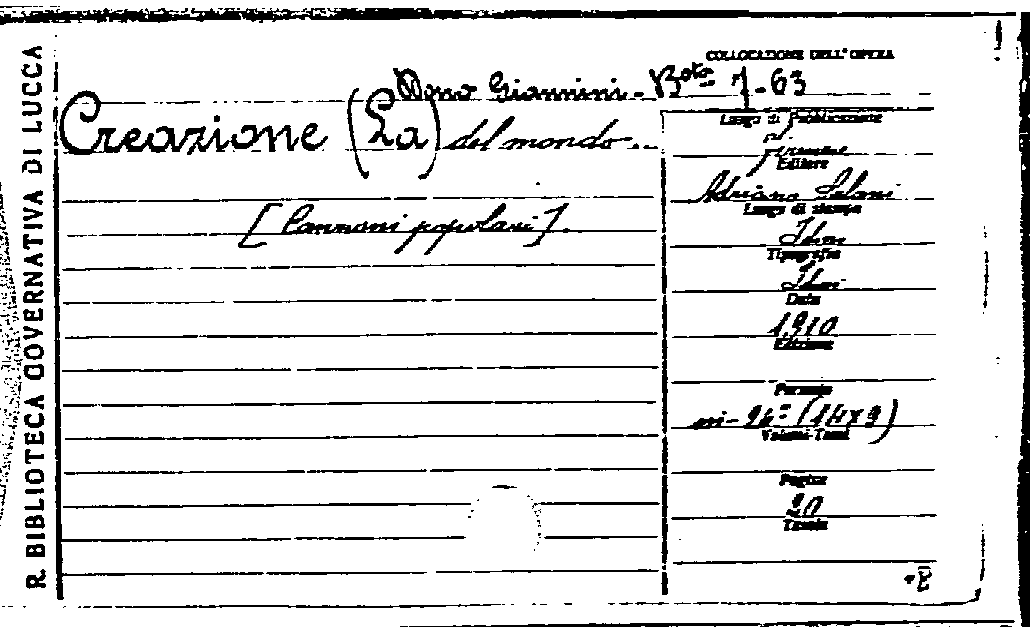 R. BIBLIOTECA GOVERNATIVA DI LUCCA
COLLOCAZIONE DELL'OPERA
Dono Giannini - 7-63
Creazione (La) del mondo..
[Canzoni popolari].
Luogo di Pubblicazione
Firenze
Editore
Adriano Salani
Luogo di stampa
Idem
Tipografia
Idem
Data
1910
Edizione
Formato
in-96° (14x9)
Volumi-Tomi
Pagine
20
Tavole